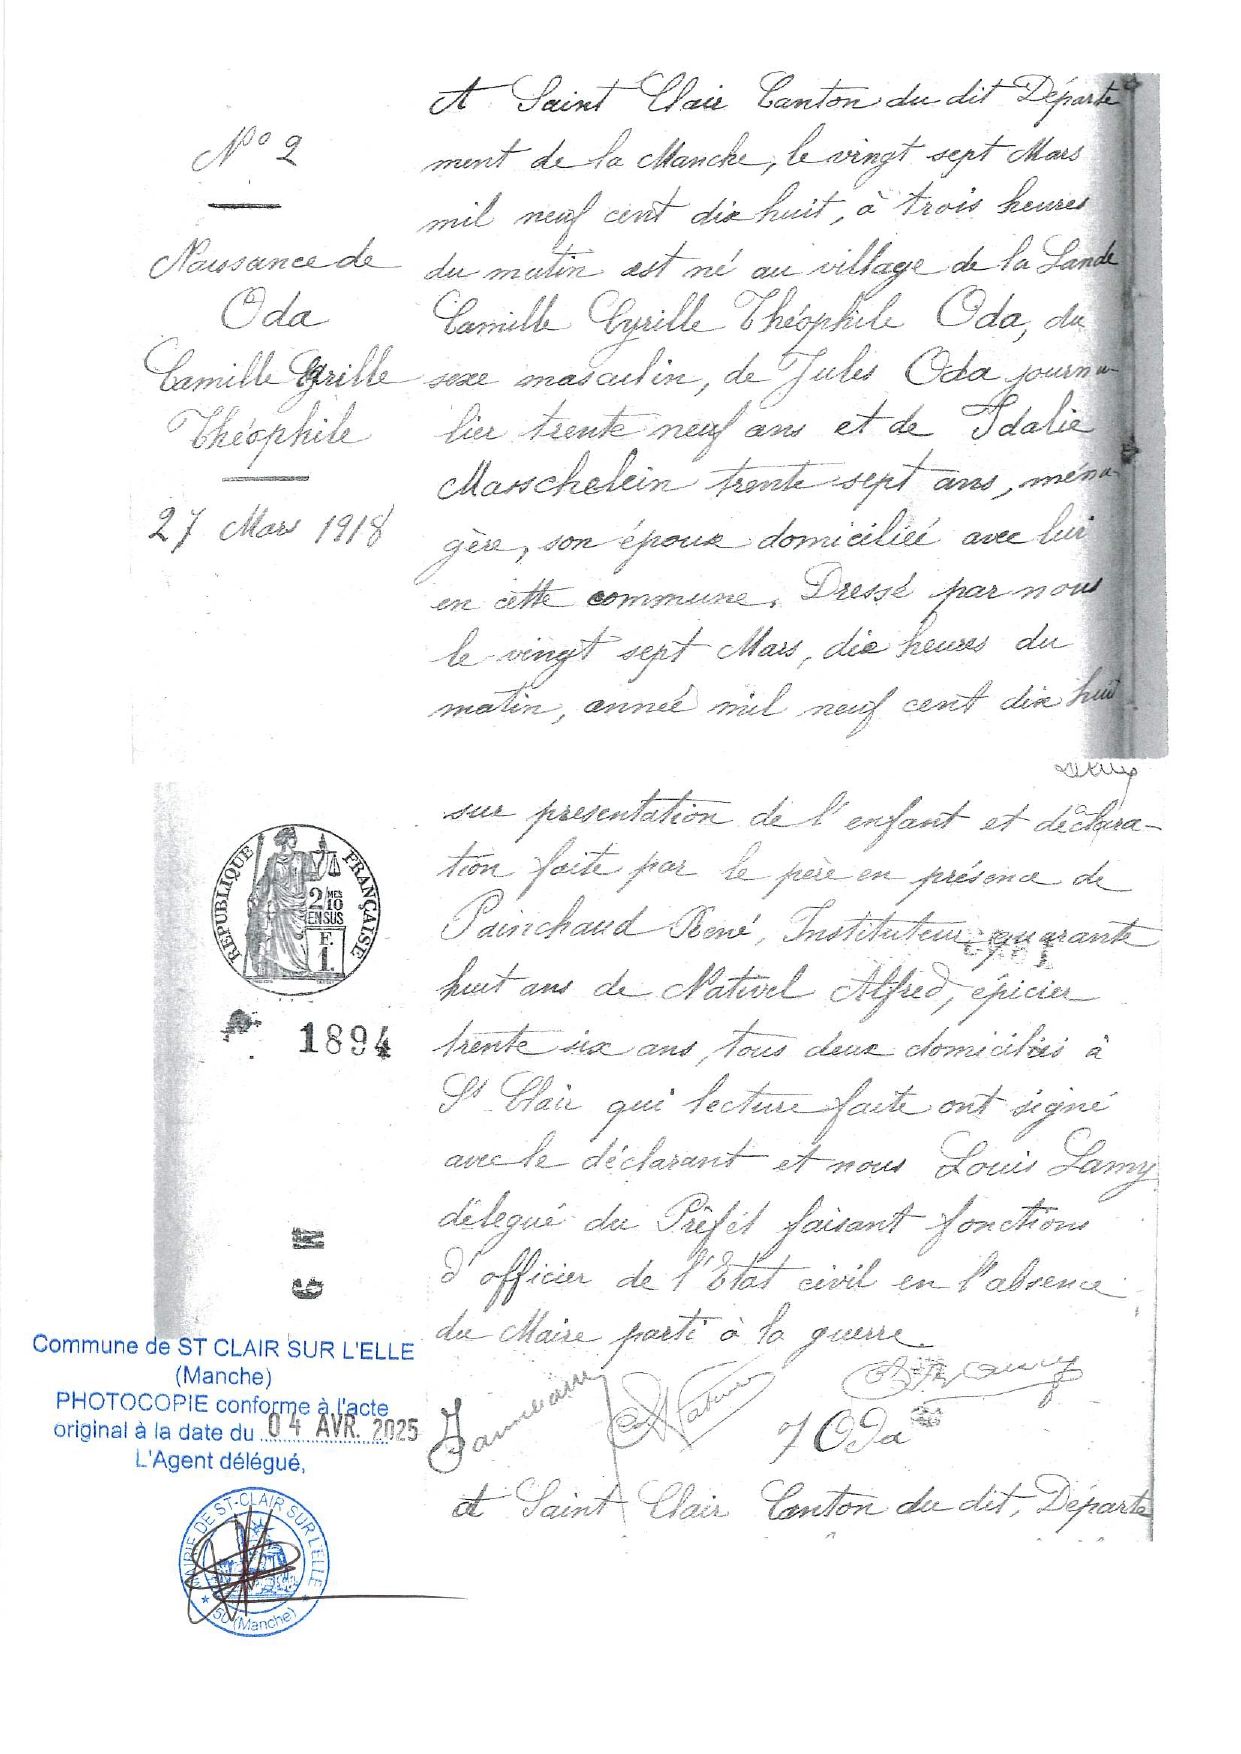 N° 2
Naissance de
Oda
Camille Cyrille
Théophile
27 Mars 1918
A Saint Clair Canton du dit Départe
ment de la Manche, le vingt sept Mars
mil neuf cent dix huit, à trois heures
du matin est né au village de la Lande
Camille Cyrille Théophile Oda, du
sexe masculin, de Jules Oda journa-
lier trente neuf ans et de Idalie
Masschelein trente sept ans, ména-
gère, son épouse domiciliée avec lui
en cette commune. Dressé par nous
le vingt sept Mars, dix heures du
matin, année mil neuf cent dix huit
sur présentation de l'enfant et déclara-
tion faite par le père en présence de
Painchaud René, Instituteur, quarante
huit ans de Nativel Alfred, épicier
trente six ans, tous deux domiciliés à
St Clair qui lecture faite ont signé
avec le déclarant et nous Louis Lamy
délégué du Préfet faisant fonctions
d'officier de l'Etat civil en l'absence
du Maire parti à la guerre
J Oda
A Saint Clair Canton du dit, Départe
RÉPUBLIQUE FRANÇAISE
2/10 MES
EN SUS
F.
1.
1894
Commune de ST CLAIR SUR L'ELLE
(Manche)
PHOTOCOPIE conforme à l'acte
original à la date du 04 AVR. 2025
L'Agent délégué,
MAIRIE DE ST-CLAIR SUR L'ELLE
* 50 (Manche) *